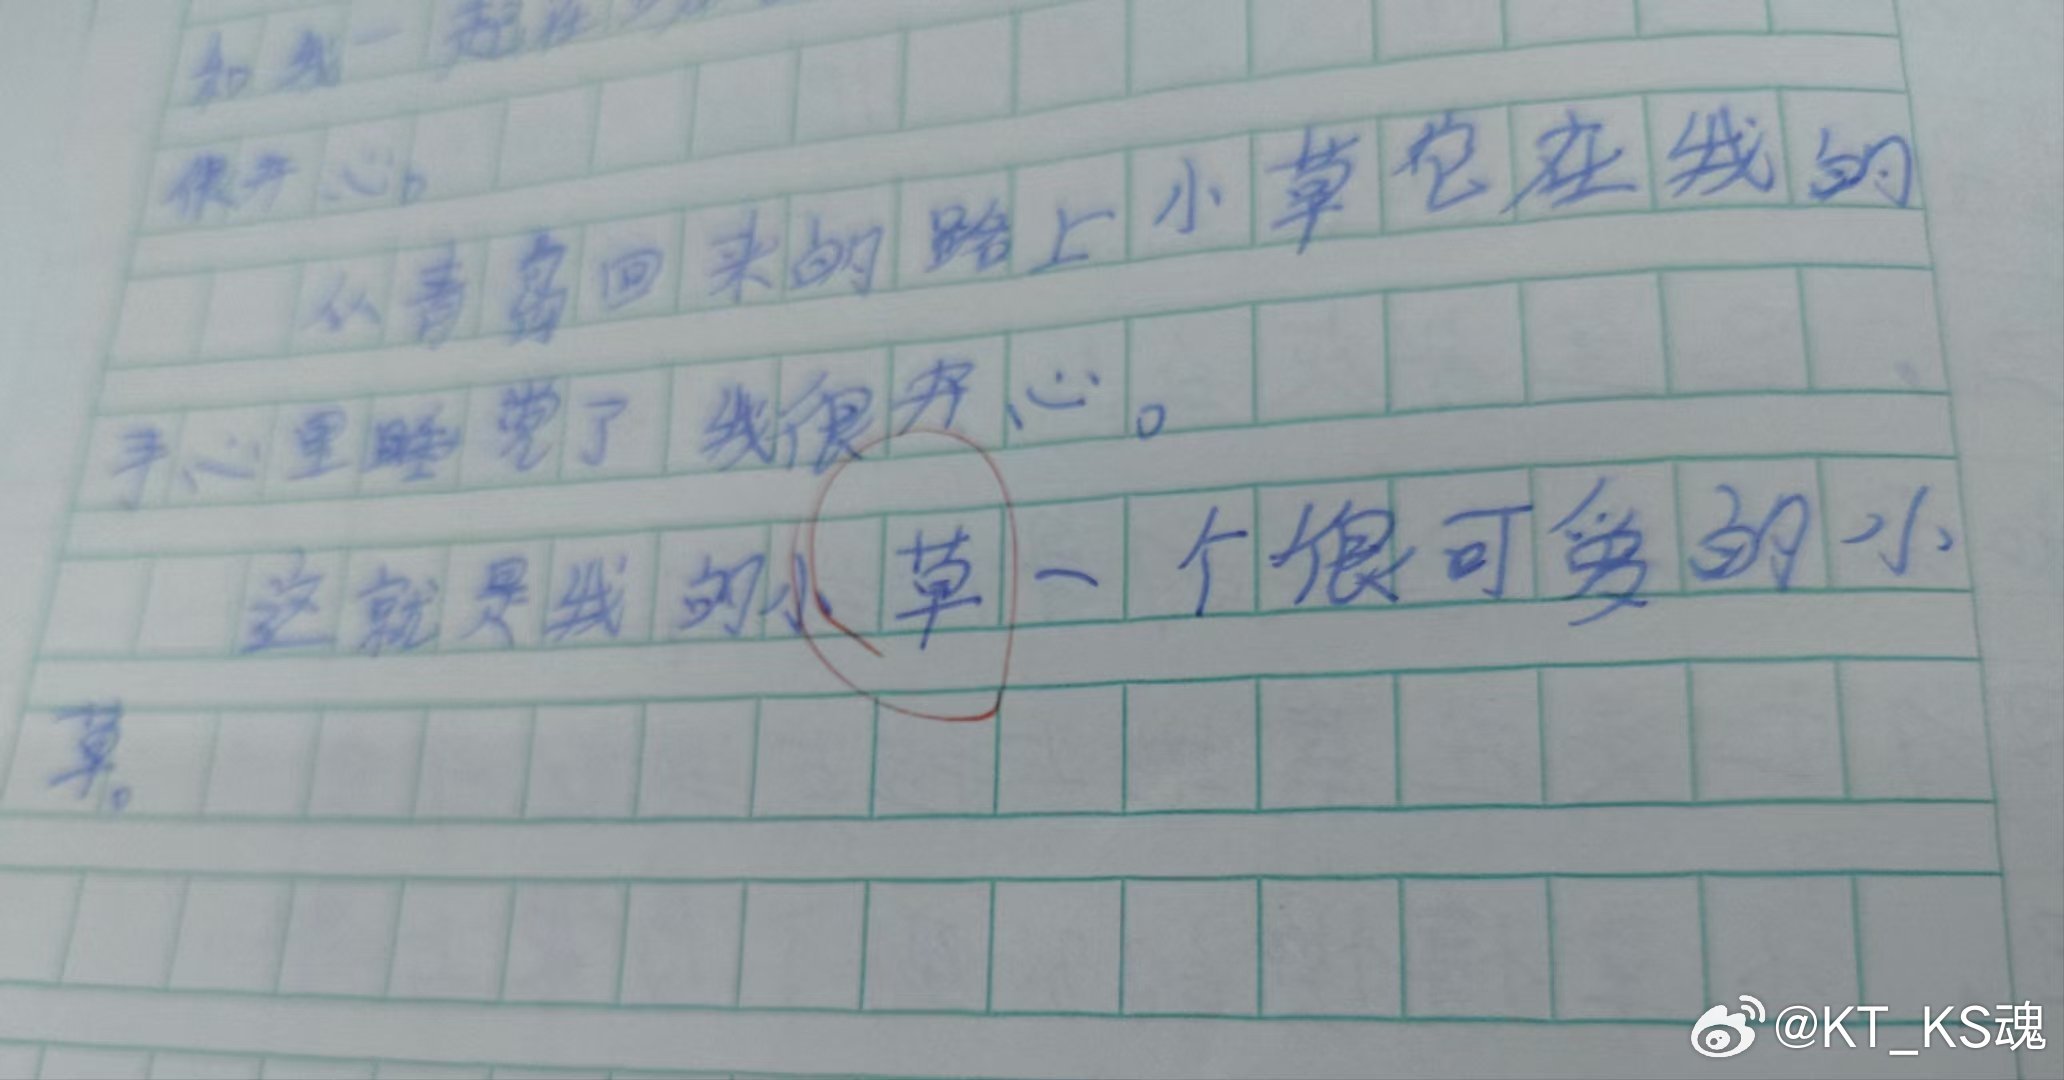 和我一起在
很开心。
从青岛回来的路上小草它在我的
手心里睡觉了我很开心。
这就是我的小草一个很可爱的小
草。
@KT_KS魂